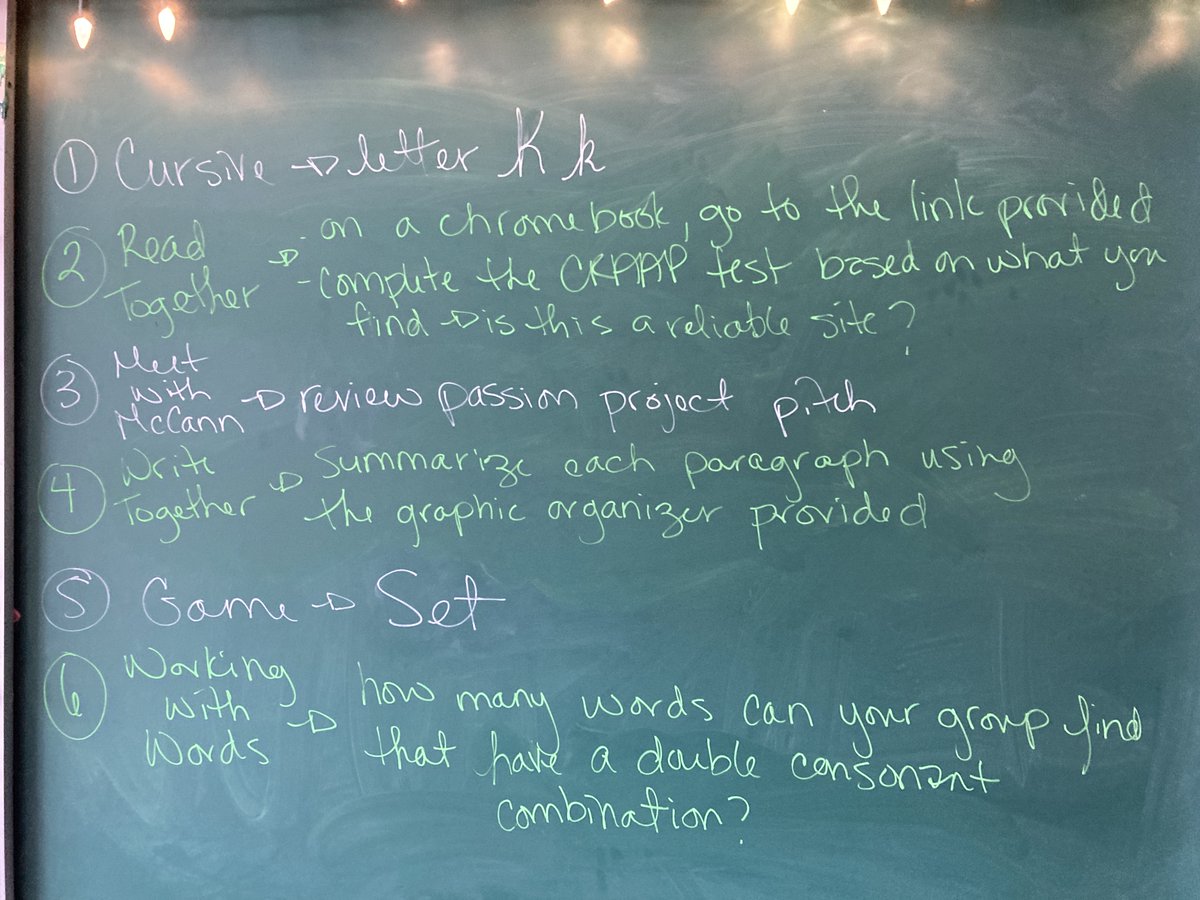 ① Cursive → letter K k
② Read Together → - on a chromebook, go to the link provided
- complete the CRAAP test based on what you
find → is this a reliable site?
③ Meet with McCann → review passion project pitch
④ Write Together → Summarize each paragraph using
the graphic organizer provided
⑤ Game → Set
⑥ Working with Words → how many words can your group find
that have a double consonant
combination?